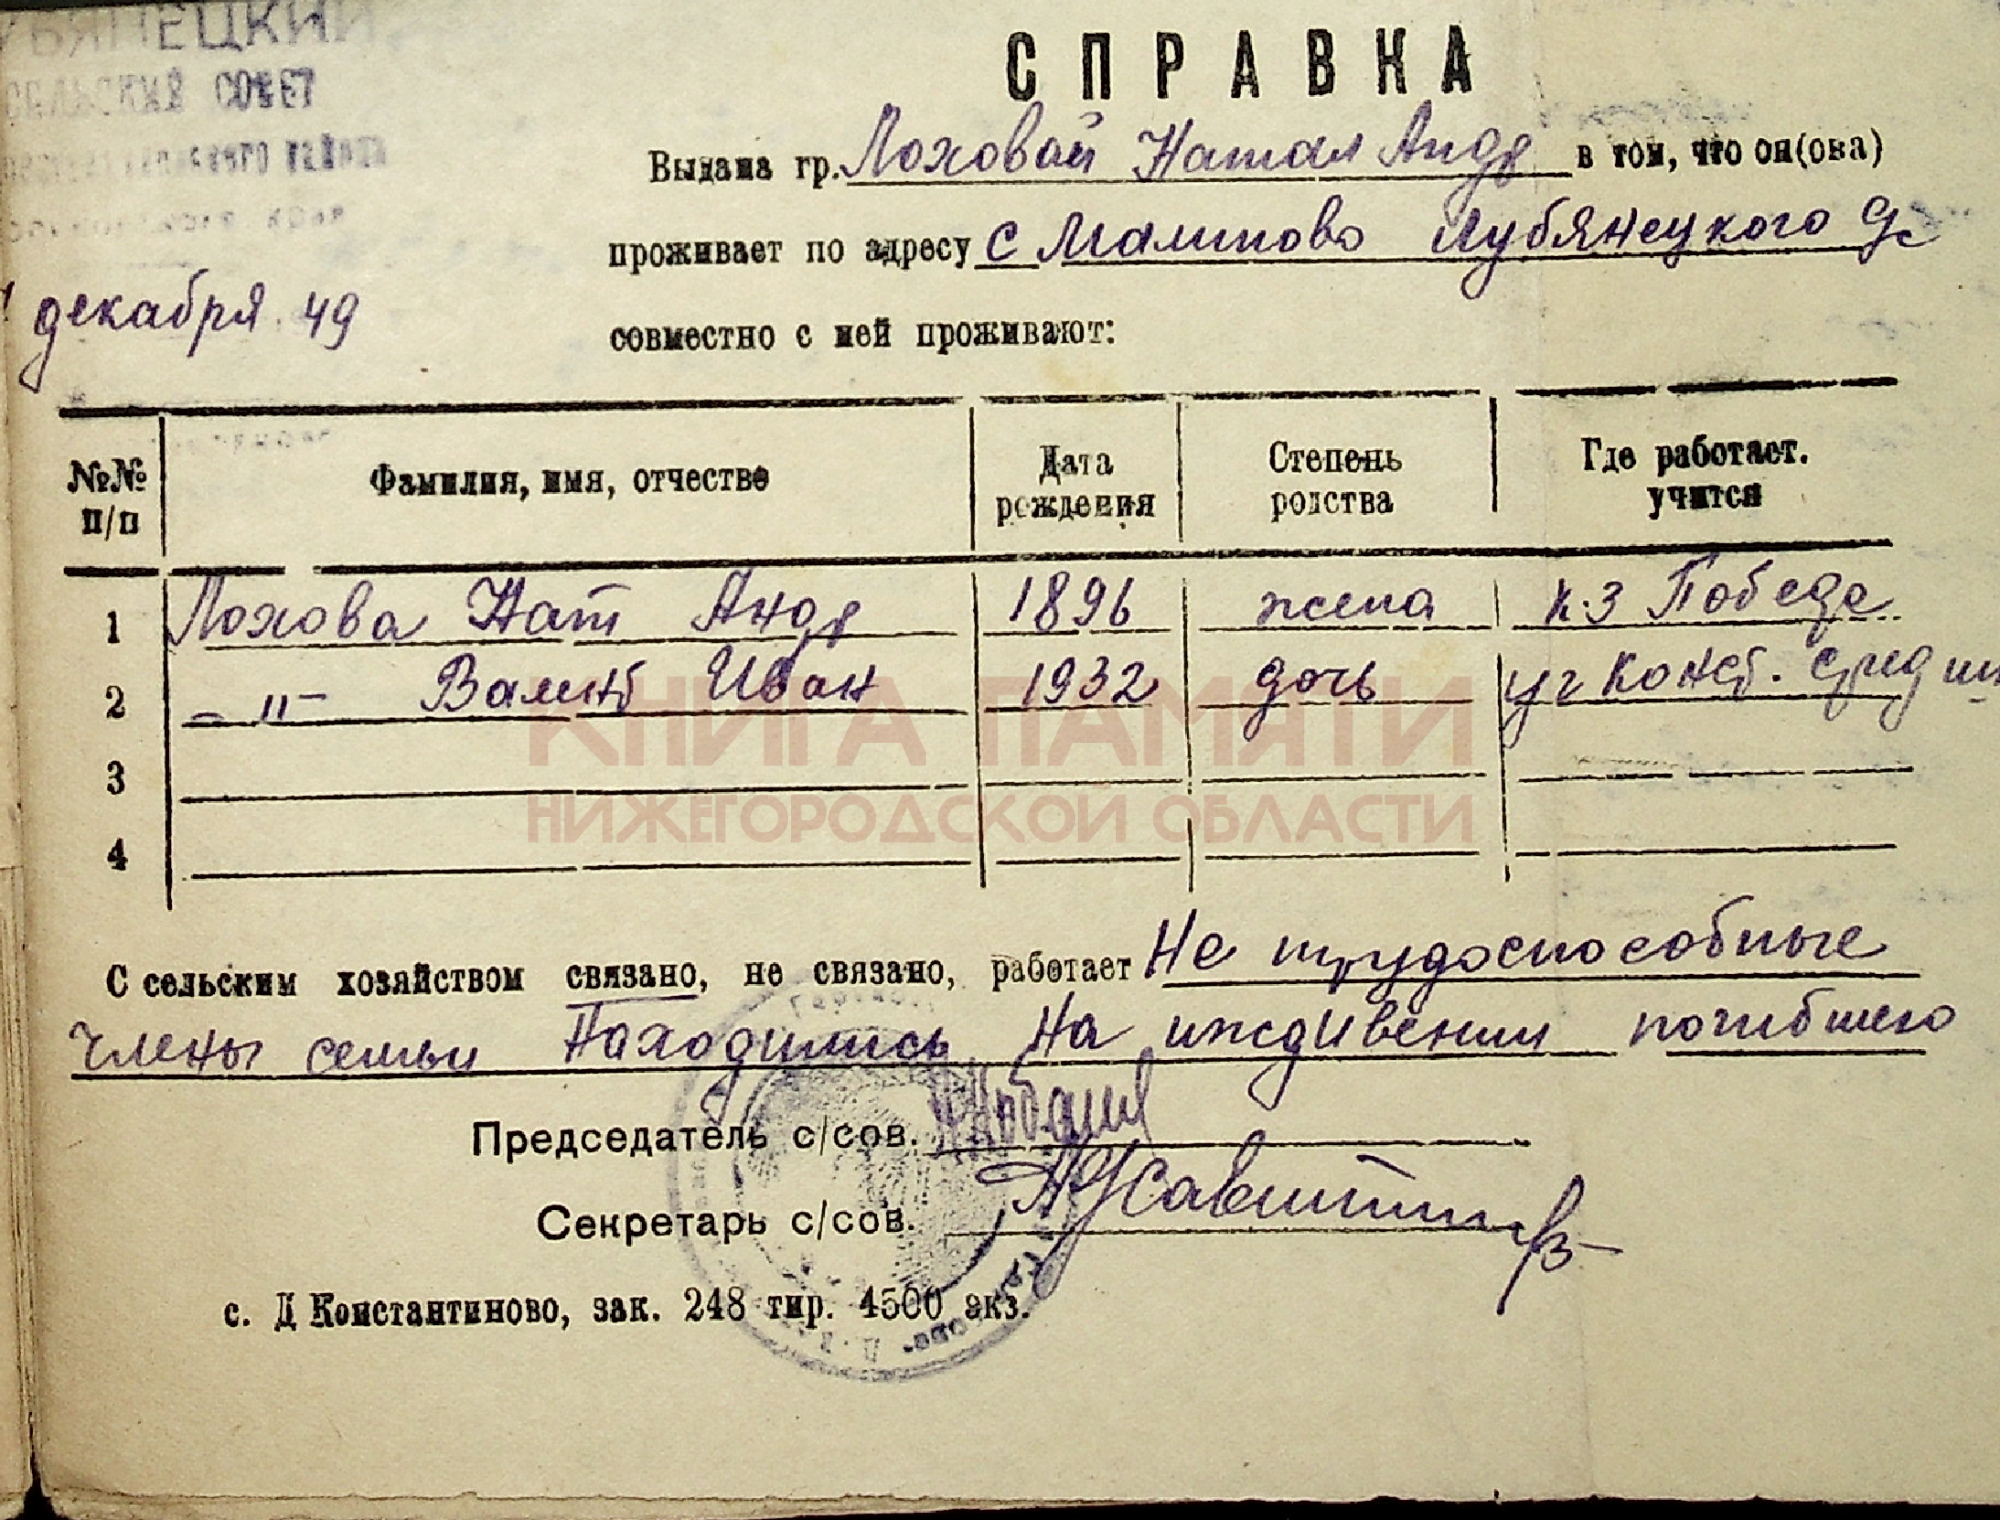 СЕЛЬСКИЙ СОВЕТ
района
декабря 49
СПРАВКА
Выдана гр. Лоховой Натал Андр в том, что он(она)
проживает по адресу с Малиново Лубянецкого с/с
совместно с ней проживают:
№№ п/п Фамилия, имя, отчество Дата рождения Степень родства Где работает. учится
1 Лохова Нат Андр 1896 жена к-з Победа
2 -"- Валент Иван 1932 дочь уч Конст. сред шк
3
4
С сельским хозяйством связано, не связано, работает Не трудоспособные
члены семьи находились на иждивении погибшего
Председатель с/сов.
Секретарь с/сов.
с. Д Константиново, зак. 248 тир. 4500 экз.
КНИГА ПАМЯТИ
НИЖЕГОРОДСКОЙ ОБЛАСТИ